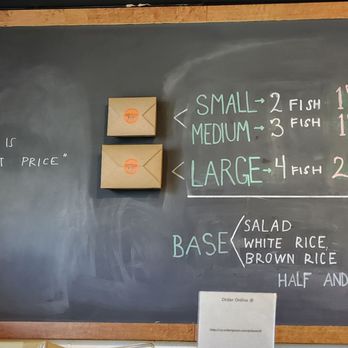 IS
T PRICE"
SMALL → 2 FISH 1
MEDIUM → 3 FISH 1
LARGE → 4 FISH 2
BASE
SALAD
WHITE RICE,
BROWN RICE
HALF AND
Order Online @